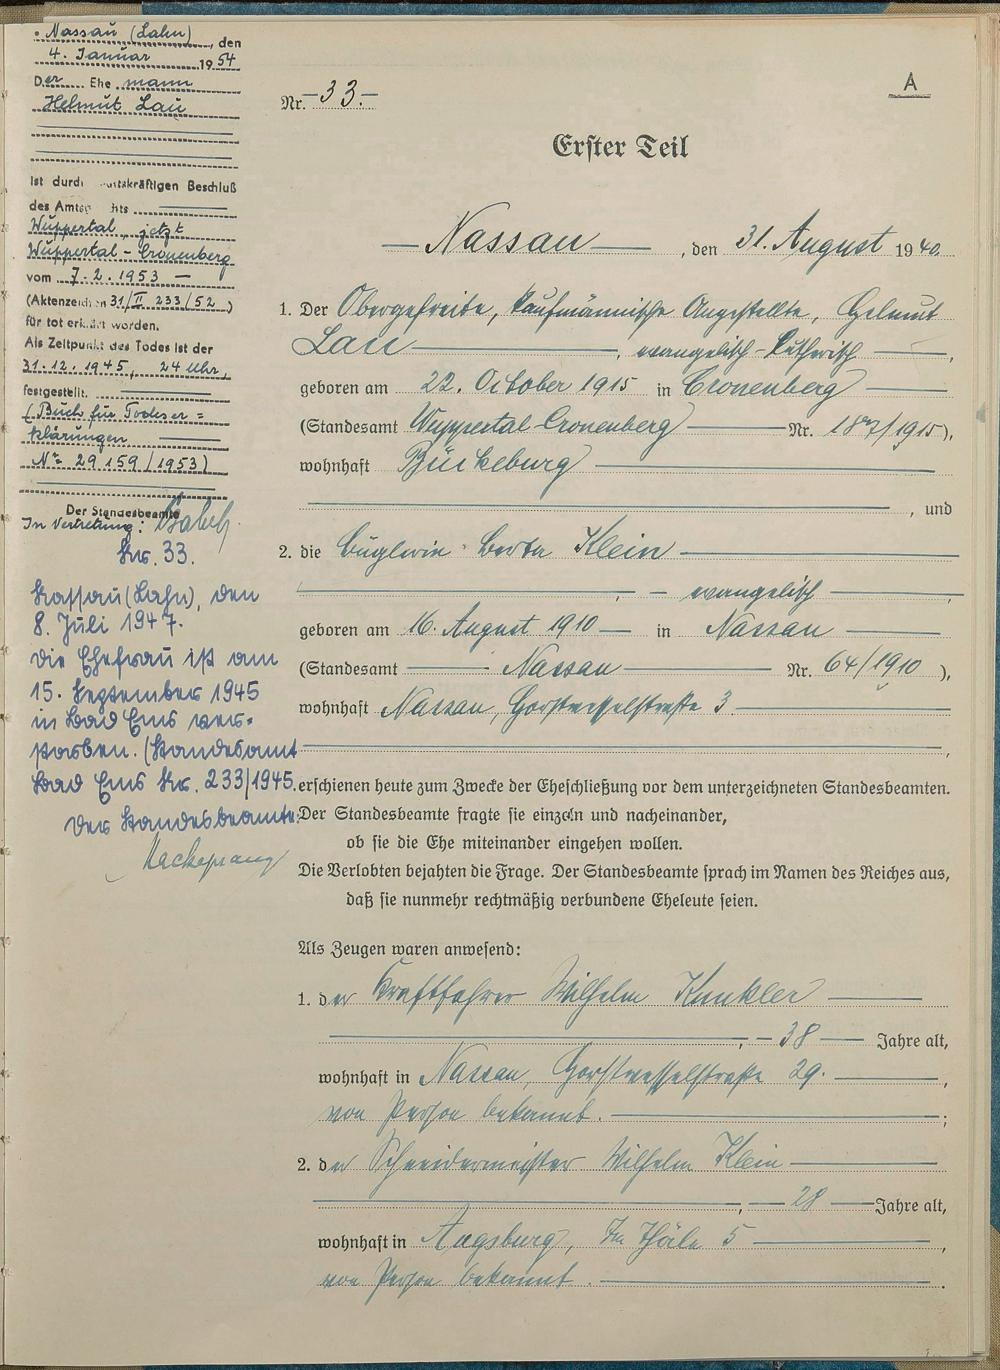 Nassau (Lahn), den
4. Januar 1954
Der Ehemann
Helmut Lau
ist durch rechtskräftigen Beschluß
des Amtsgerichts
Wuppertal, jetzt
Wuppertal-Cronenberg
vom 7.2.1953 —
(Aktenzeichen 31/II 233/52)
für tot erklärt worden.
Als Zeitpunkt des Todes ist der
31.12.1945, 24 Uhr,
festgestellt.
(Buch für Todeser=
klärungen
Nr. 29159/1953)
Der Standesbeamte
In Vertretung:
Nr. 33.
Nassau (Lahn), den
8. Juli 1947.
Die Ehefrau ist am
15. September 1945
in Bad Ems ver-
storben. (Standesamt
Bad Ems Nr. 233/1945.
Der Standesbeamte:
Mackeprang
A
Nr. -33.-
Erster Teil
— Nassau —, den 31. August 1940.
1. Der Obergefreite, kaufmännische Angestellte, Helmut
Lau —, evangelisch-lutherisch —,
geboren am 22. October 1915 in Cronenberg —
(Standesamt Wuppertal-Cronenberg — Nr. 187/1915),
wohnhaft Bückeburg —
—, und
2. die Büglerin Berta Klein —
—, — evangelisch —,
geboren am 16. August 1910 — in Nassau —
(Standesamt — Nassau — Nr. 64/1910),
wohnhaft Nassau, Horstwesselstraße 3. —
—,
erschienen heute zum Zwecke der Eheschließung vor dem unterzeichneten Standesbeamten.
Der Standesbeamte fragte sie einzeln und nacheinander,
ob sie die Ehe miteinander eingehen wollen.
Die Verlobten bejahten die Frage. Der Standesbeamte sprach im Namen des Reiches aus,
daß sie nunmehr rechtmäßig verbundene Eheleute seien.
Als Zeugen waren anwesend:
1. der Kraftfahrer Wilhelm Kunkler —
—, — 38 — Jahre alt,
wohnhaft in Nassau, Horstwesselstraße 29. —,
von Person bekannt. —;
2. der Schneidermeister Wilhelm Klein —
—, — 28 — Jahre alt,
wohnhaft in Augsburg, Im Thäle 5 —,
von Person bekannt. —.